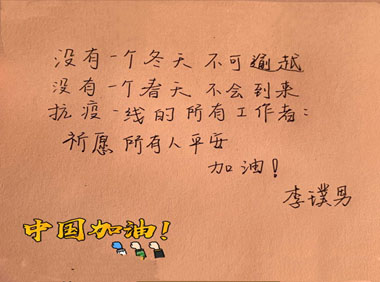 没有一个冬天不可逾越
没有一个春天不会到来
抗疫一线的所有工作者：
祈愿所有人平安
加油！
李璞男
中国加油！